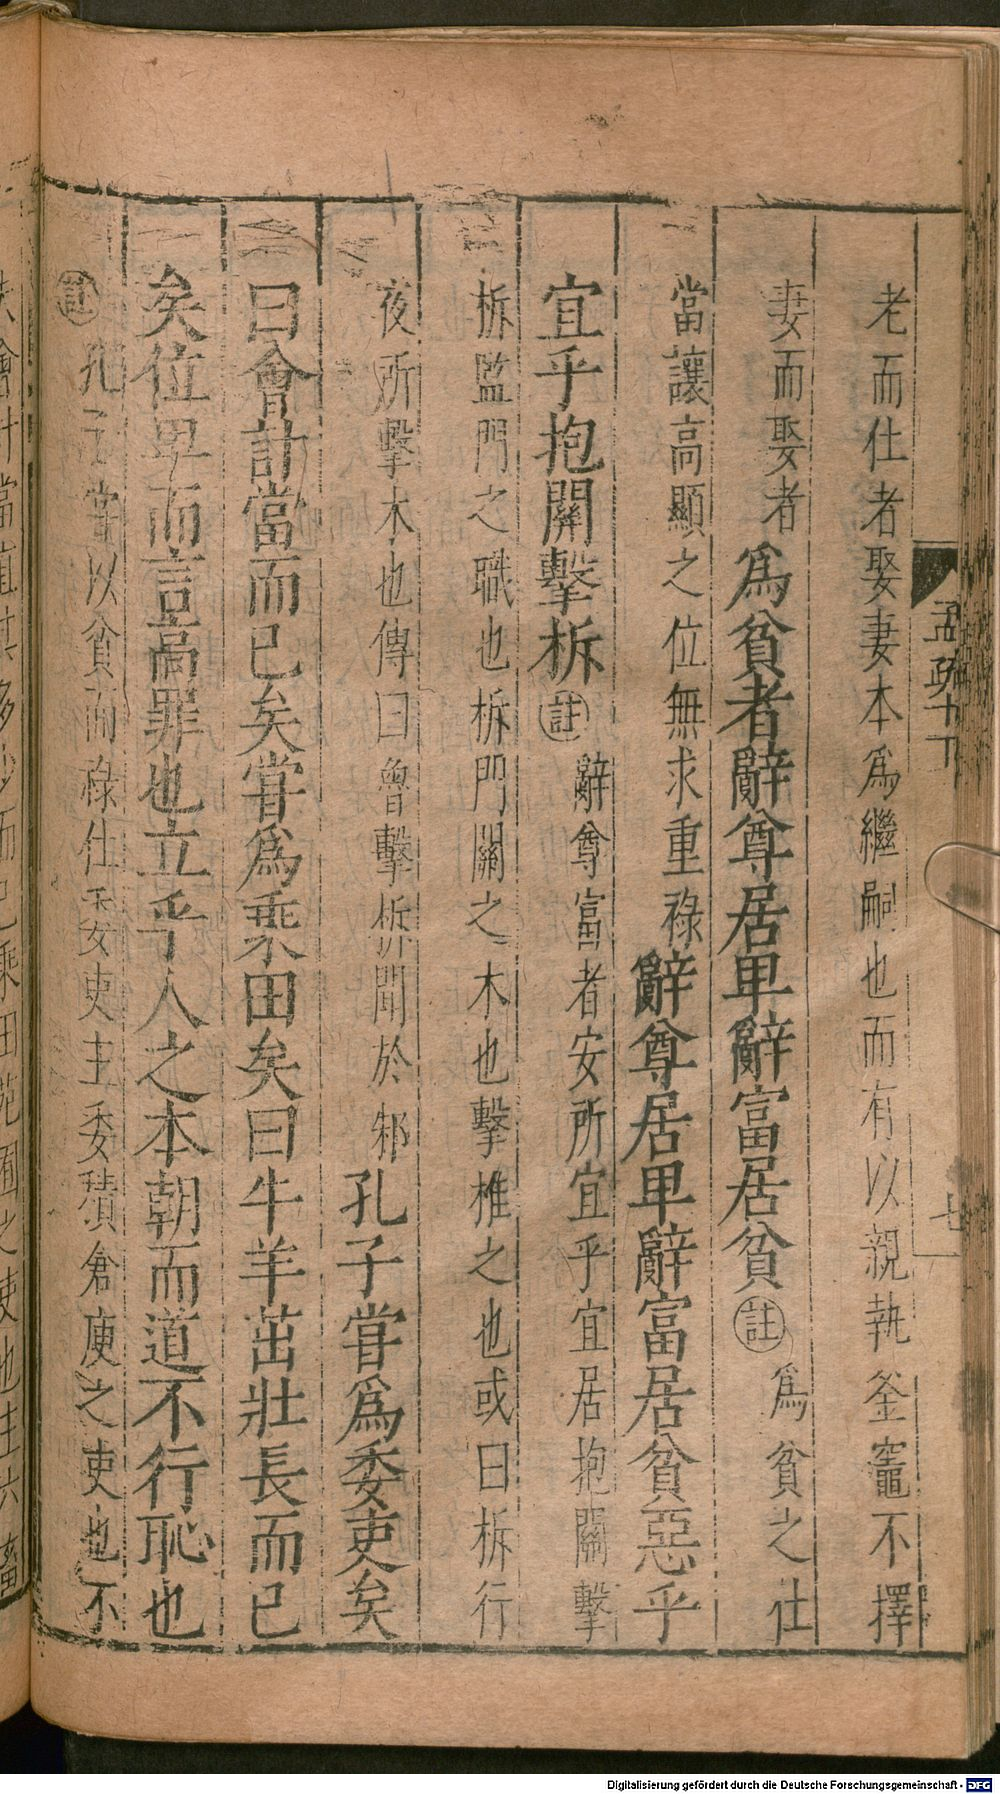 老而仕者娶妻本爲繼嗣也而有以親執釜竈不擇
妻而娶者爲貧者辭尊居卑辭富居貧註爲貧之仕
當讓高顯之位無求重祿辭尊居卑辭富居貧惡乎
宜乎抱關擊柝註辭尊富者安所宜乎宜居抱關擊
柝監門之職也柝門關之木也擊椎之也或曰柝行
夜所擊木也傳曰魯擊柝聞於邾孔子甞爲委吏矣
曰會計當而已矣甞爲乘田矣曰牛羊茁壯長而已
矣位卑而言高罪也立乎人之本朝而道不行恥也
註孔子甞以貧而祿仕委吏主委積倉庾之吏也不
失會計當直其多少而已乘田苑囿之吏也主六畜
七
Digitalisierung gefördert durch die Deutsche Forschungsgemeinschaft - DFG